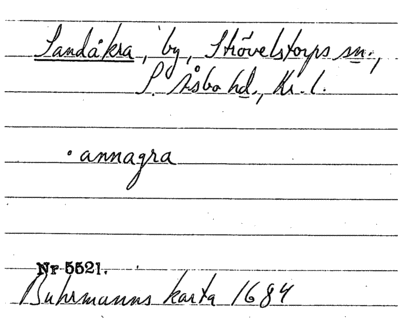 Sandåkra, by, Strövelstorps sn.,
S. Åsbo hd., Kr. l.
• annagra
Nr 5521.
Buhrmanns karta 1684